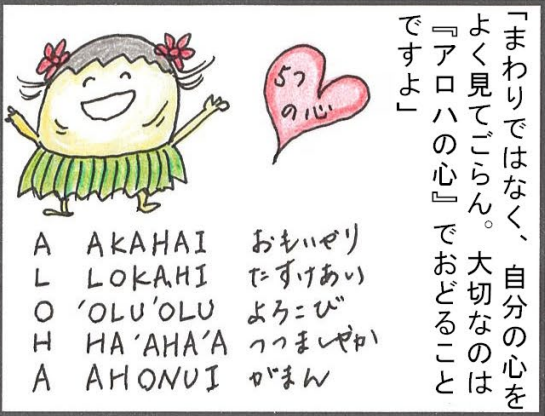 「まわりではなく、自分の心を
よく見てごらん。大切なのは
『アロハの心』でおどること
ですよ」
5つ
の心
A AKAHAI おもいやり
L LOKAHI たすけあい
O 'OLU'OLU よろこび
H HA'AHA'A つつましやか
A AHONUI がまん